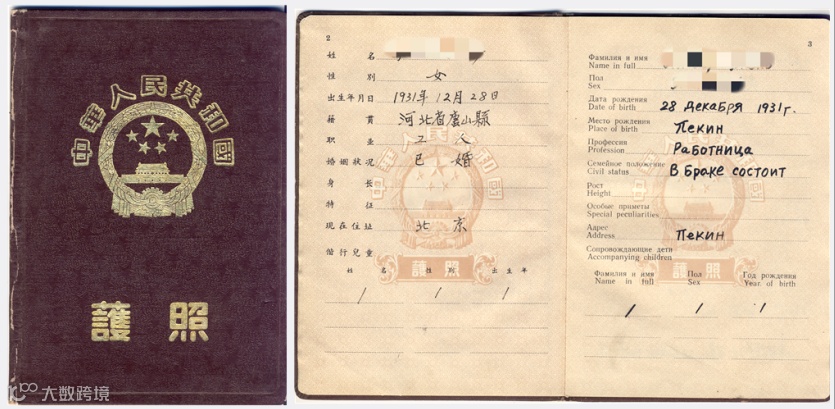 中華人民共和國
護照
大数跨境
2
姓名
性別 女
出生年月日 1931年12月28日
籍貫 河北省盧山縣
职业 工人
婚姻状况 已婚
身長
特征
現在住址 北京
偕行兒童
姓名 性別 出生年
/ / /
中華人民共和國
護照
3
Фамилия и имя
Name in full
Пол
Sex
Дата рождения
Date of birth 28 декабря 1931г.
Место рождения
Place of birth Пекин
Профессия
Profession Работница
Семейное положение
Civil status В браке состоит
Рост
Height
Особые приметы
Special peculiarities
Адрес
Address Пекин
Сопровождающие дети
Accompanying children
Фамилия и имя Пол Год рождения
Name in full Sex Year of birth
/ / /
護照